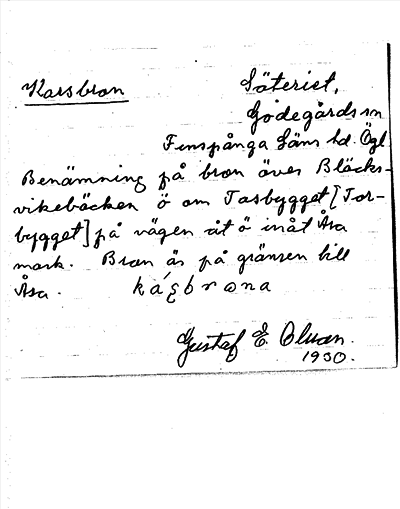 Karsbron
Säteriet,
Godegårds sn
Finspånga läns hd. Ögl
Benämning på bron över Bläcks-
vikebäcken ö om Tasbygget [Tor-
bygget] på vägen åt ö inåt Åsa
mark. Bron är på gränsen till
Åsa.
Gustaf E. Olsson.
1930.